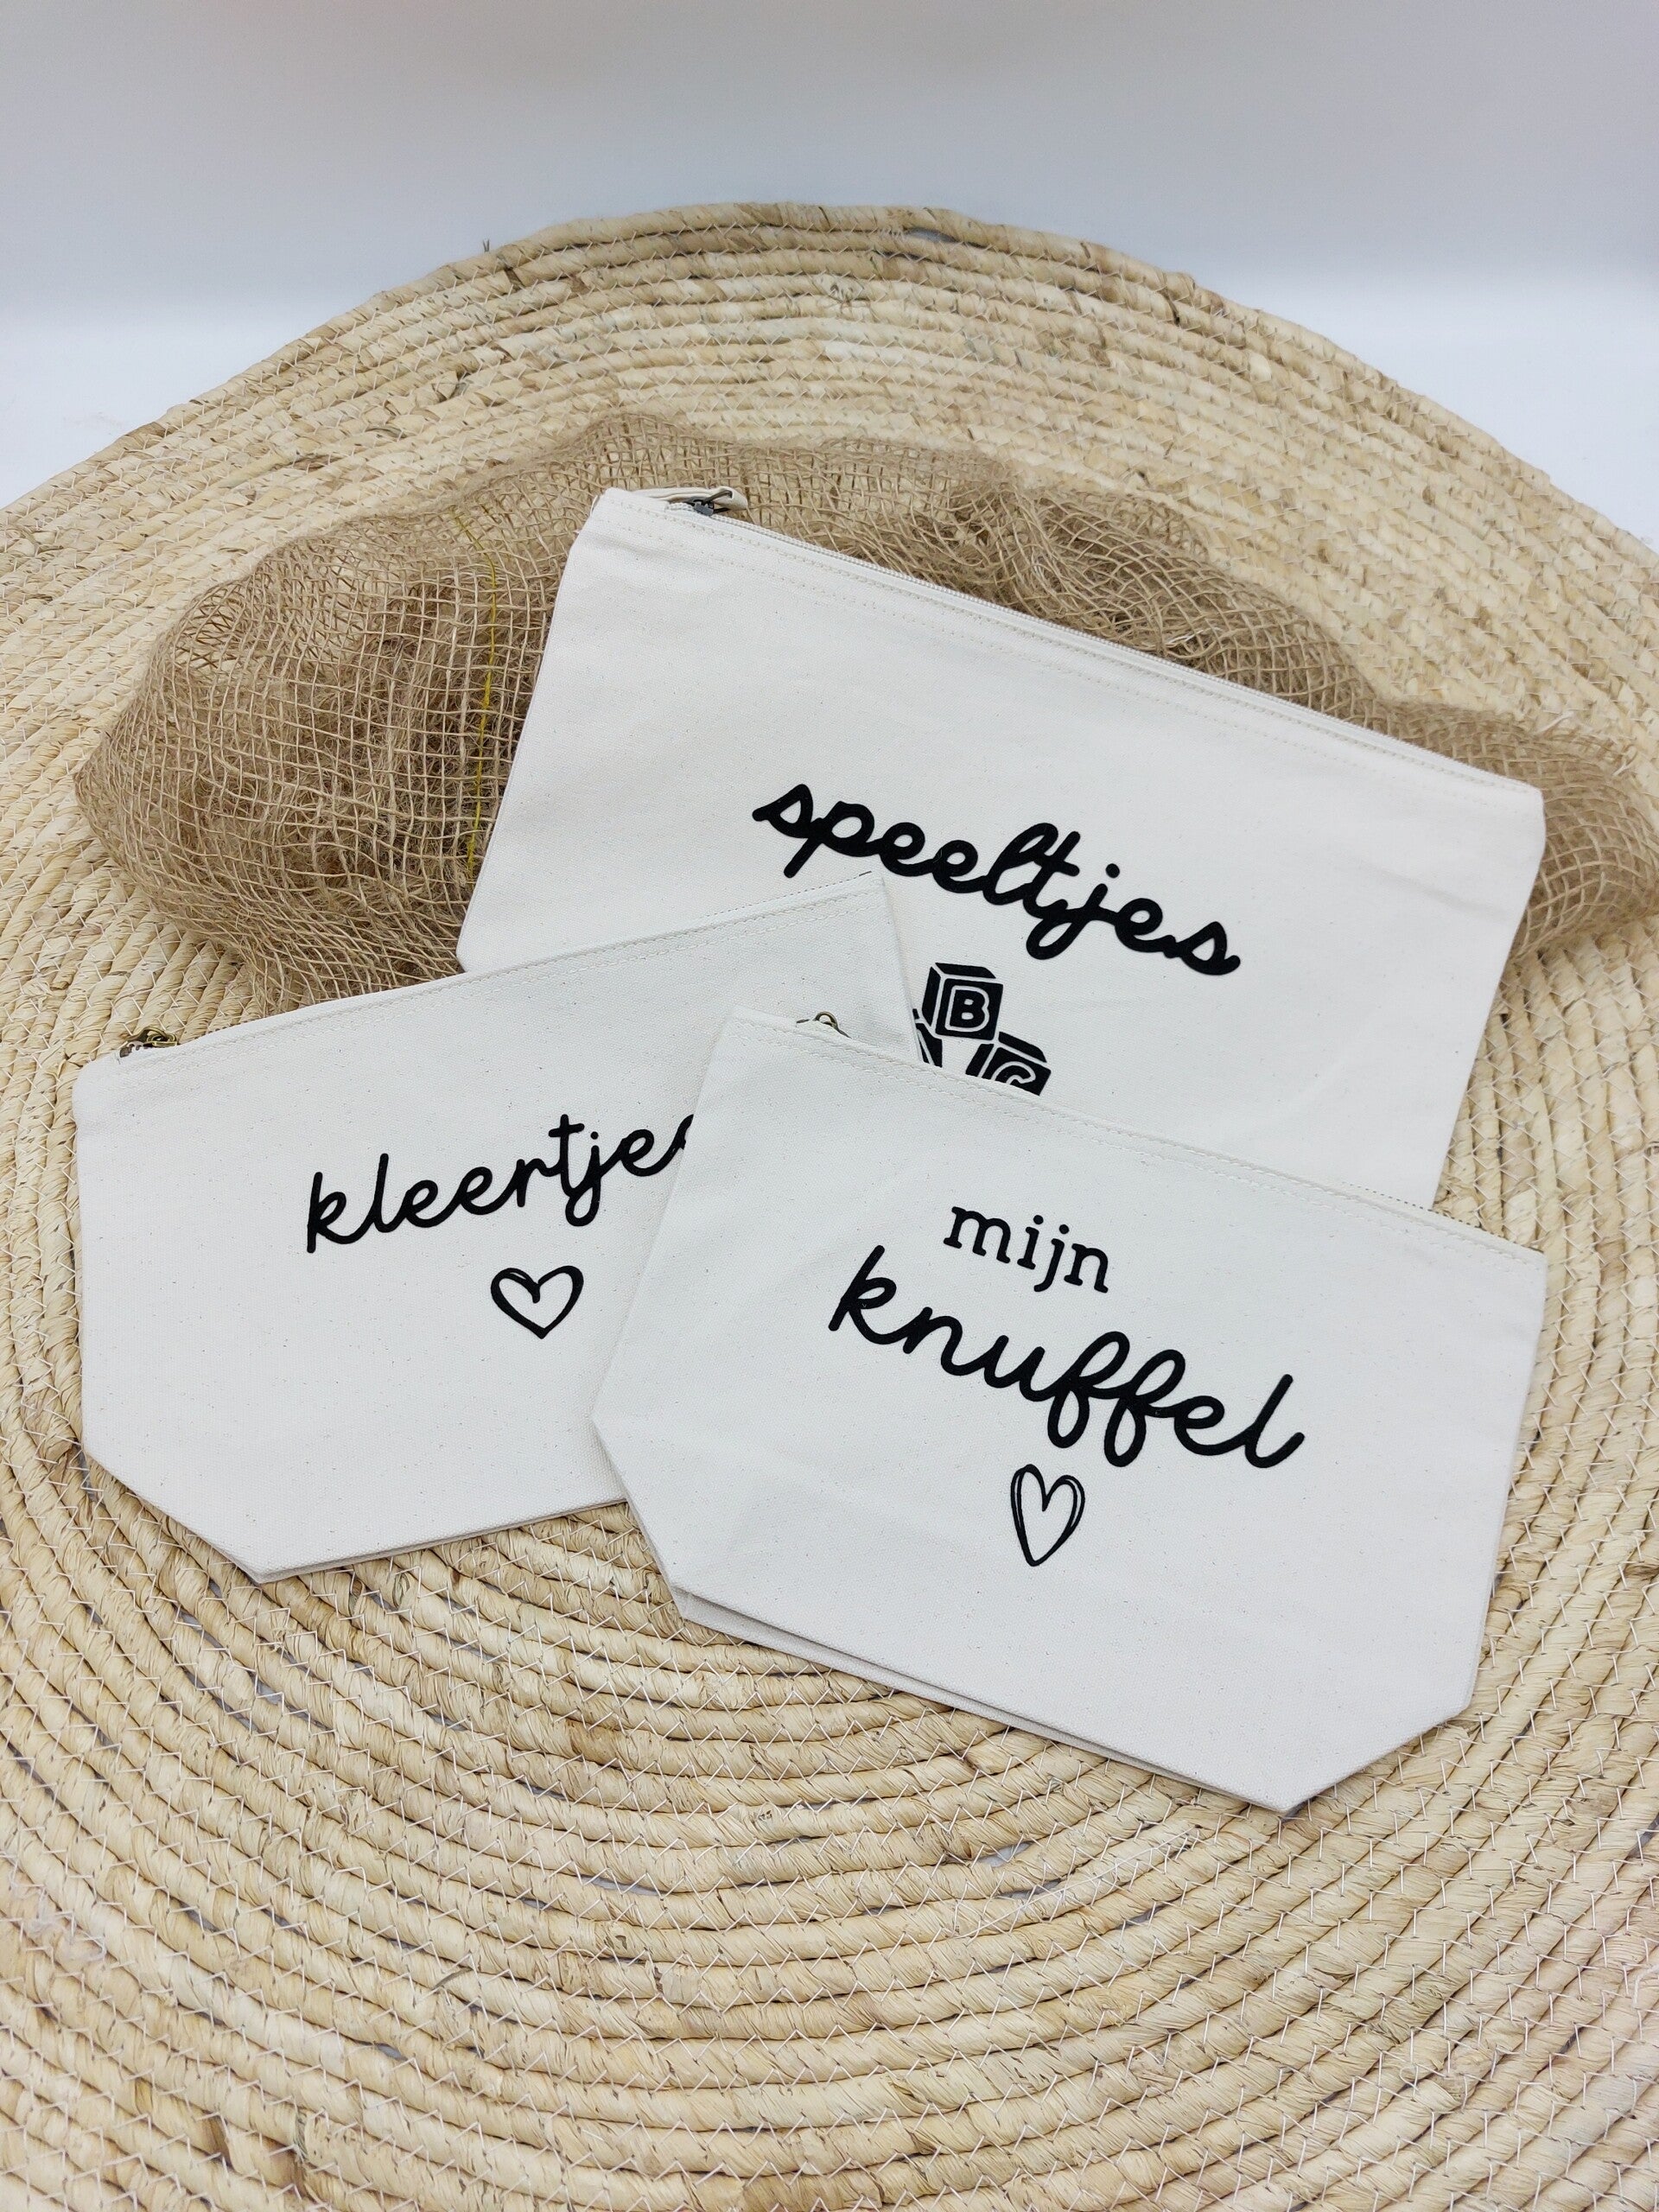 speeltjes
B
C
kleertjes
mijn
knuffel